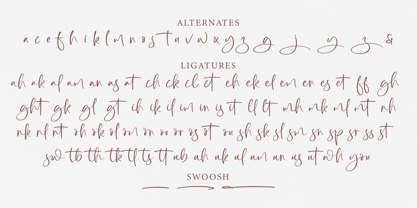 ALTERNATES
a c e f h i k l m n o s t u v w x y z g j y z &
LIGATURES
ah ak al am an as at ch ck cl ct eh ek el em en es et ff gh
ght gk gl gt ih ik il im in is it ll lt mh mk ml mt nh
nk nl nt oh ok ol om on or os ot ou sh sk sl sm sn sp sr ss st
sw tb th tk tl ts tt ub uh uk ul um un us ut wh you
SWOOSH